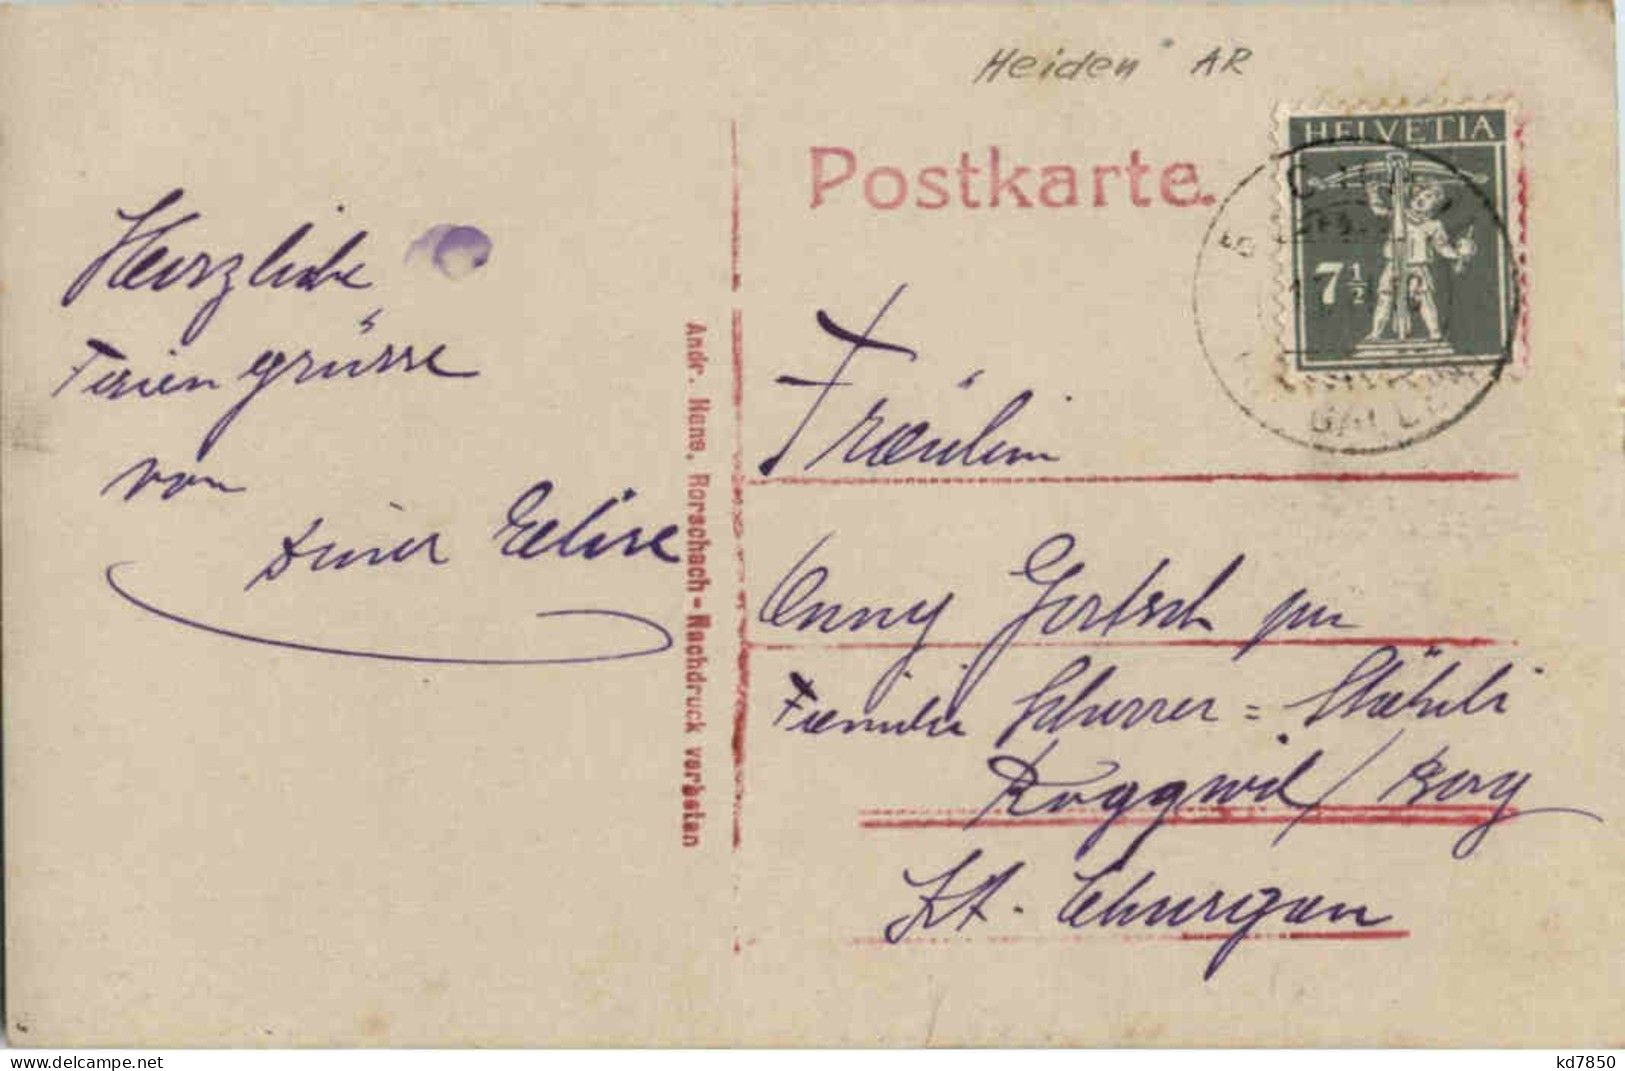 Heiden AR
Postkarte.
HELVETIA
7 1/2
Herzliche
Feriengrüsse
von
deiner Elise
Andr. Hane, Rorschach-Nachdruck verboten
Fräulein
Anny Gortsch pr
Familie Scherrer = Stäheli
Roggwil / Berg
Kt. Thurgau
www.delcampe.net
kd7850